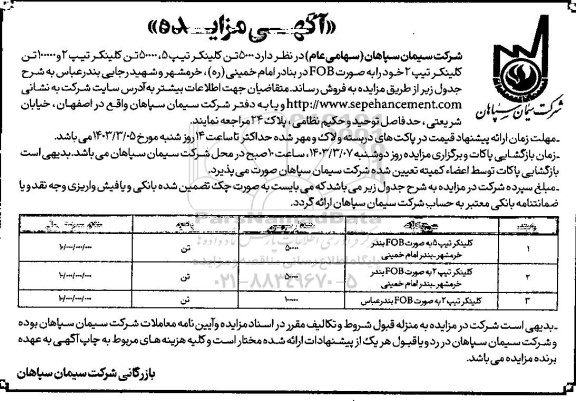 «آگهی مزایده»
شرکت سیمان سپاهان
شرکت سیمان سپاهان (سهامی عام) در نظر دارد ۵۰۰۰۰ تن کلینکر تیپ ۵، ۵۰۰۰۰ تن کلینکر تیپ ۲ و ۱۰۰۰۰۰ تن
کلینکر تیپ ۲ خود را به صورت FOB در بنادر امام خمینی (ره)، خرمشهر و شهید رجایی بندرعباس به شرح
جدول زیر از طریق مزایده به فروش رساند. متقاضیان جهت اطلاعات بیشتر به آدرس سایت شرکت به نشانی
http://www.sepehancement.com و یا به دفتر شرکت سیمان سپاهان واقع در اصفهان، خیابان
شریعتی، حدفاصل توحید و حکیم نظامی، پلاک ۲۴ مراجعه نمایند.
ـ مهلت زمان ارائه پیشنهاد قیمت در پاکت‌های دربسته و لاک و مهر شده حداکثر تا ساعت ۱۴ روز شنبه مورخ ۱۴۰۳/۳/۰۵ می‌باشد.
ـ زمان بازگشایی پاکات و برگزاری مزایده روز دوشنبه ۱۴۰۳/۳/۰۷، ساعت ۱۰ صبح در محل شرکت سیمان سپاهان می‌باشد. بدیهی است
بازگشایی پاکات توسط اعضاء کمیته تعیین شده شرکت سیمان سپاهان صورت می پذیرد.
ـ مبلغ سپرده شرکت در مزایده به شرح جدول زیر می‌باشد که می بایست به صورت چک تضمین شده بانکی و یا فیش واریزی وجه نقد و یا
ضمانتنامه بانکی معتبر به حساب شرکت سیمان سپاهان ارائه گردد.
۱ کلینکر تیپ ۵ به صورت FOB بندر خرمشهر-بندر امام خمینی ۵۰۰۰۰ تن ۱۰/۰۰۰/۰۰۰/۰۰۰
۲ کلینکر تیپ ۲ به صورت FOB بندر خرمشهر-بندر امام خمینی ۵۰۰۰۰ تن ۱۰/۰۰۰/۰۰۰/۰۰۰
۳ کلینکر تیپ ۲ به صورت FOB بندرعباس ۱۰۰۰۰۰ تن ۱۰/۰۰۰/۰۰۰/۰۰۰
۰۲۱-۸۸۳۴۹۶۷۰-۵
ـ بدیهی است شرکت در مزایده به منزله قبول شروط و تکالیف مقرر در اسناد مزایده و آیین نامه معاملات شرکت سیمان سپاهان بوده
و شرکت سیمان سپاهان در رد و یا قبول هر یک از پیشنهادات ارائه شده مختار است و کلیه هزینه های مربوط به چاپ آگهی به عهده
برنده مزایده می باشد.
بازرگانی شرکت سیمان سپاهان